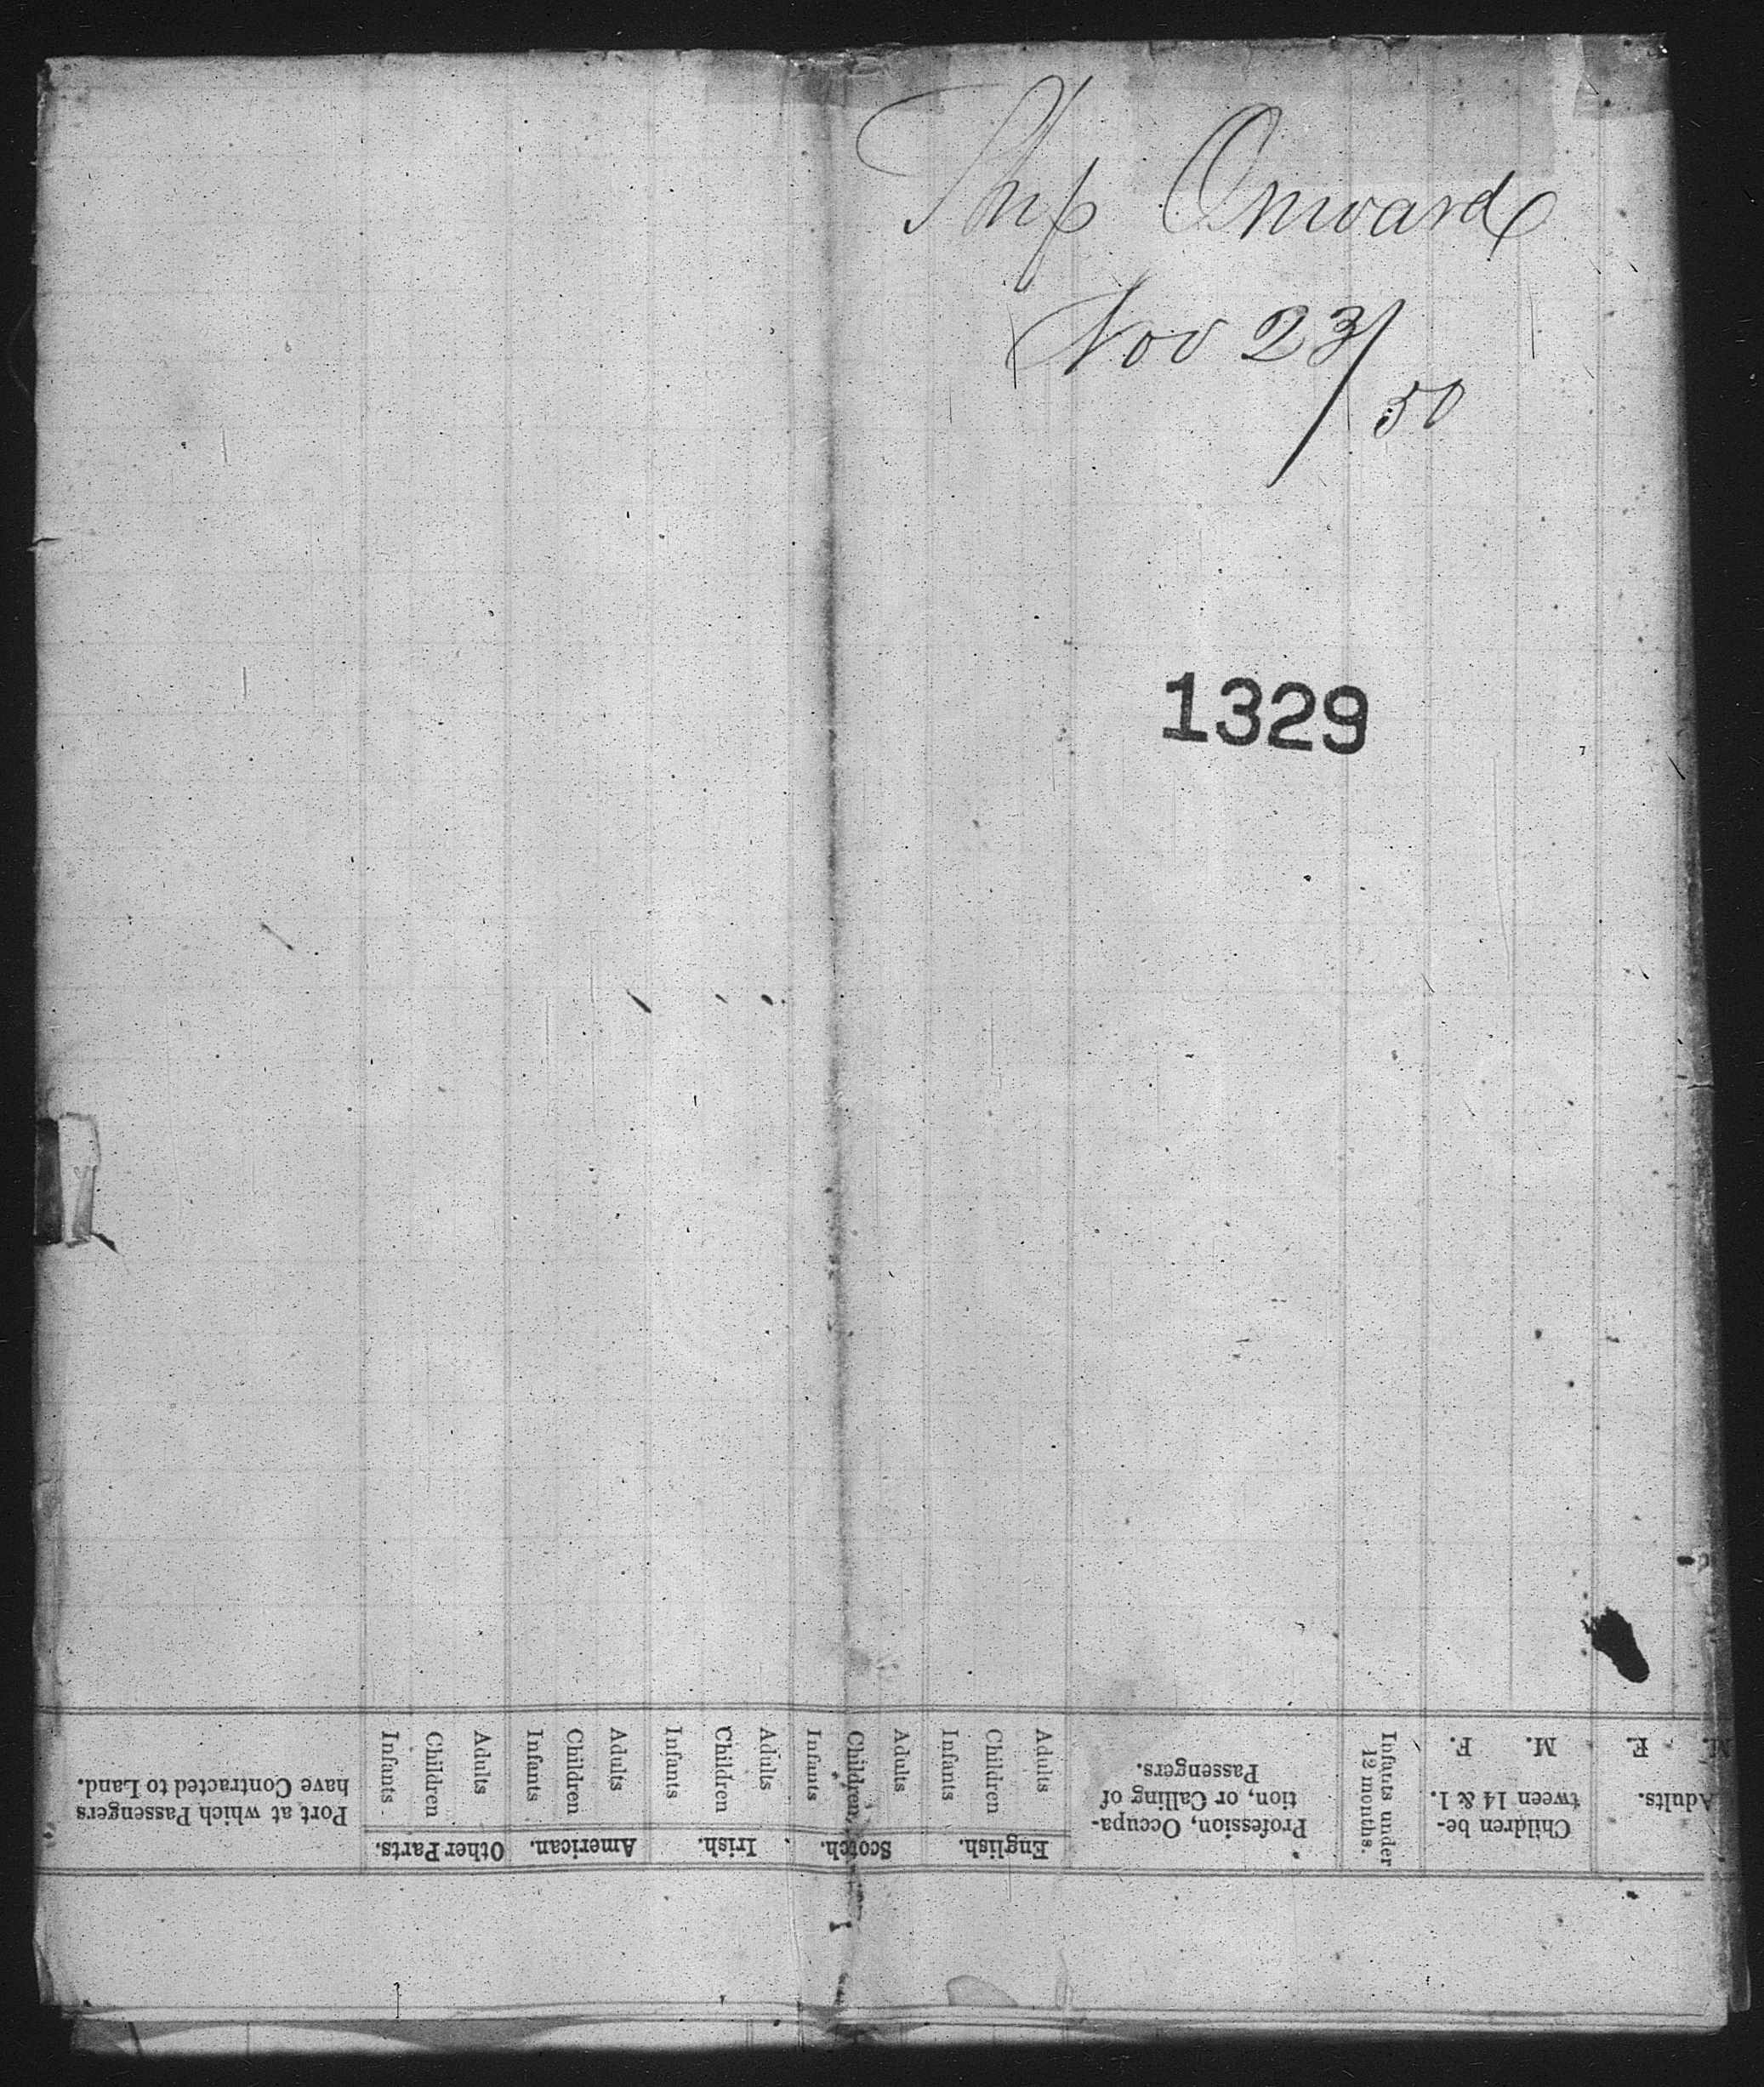 Ship Onward
Nov 23/50
1329
Port at which Passengers
have Contracted to Land.
Other Parts.
Adults
Children
Infants
American.
Adults
Children
Infants
Irish.
Adults
Children
Infants
Scotch.
Adults
Children
Infants
English.
Adults
Children
Infants
Profession, Occupa-
tion, or Calling of
Passengers.
Infants under
12 months.
Children be-
tween 14 & 1.
M. F.
Adults.
M. F.